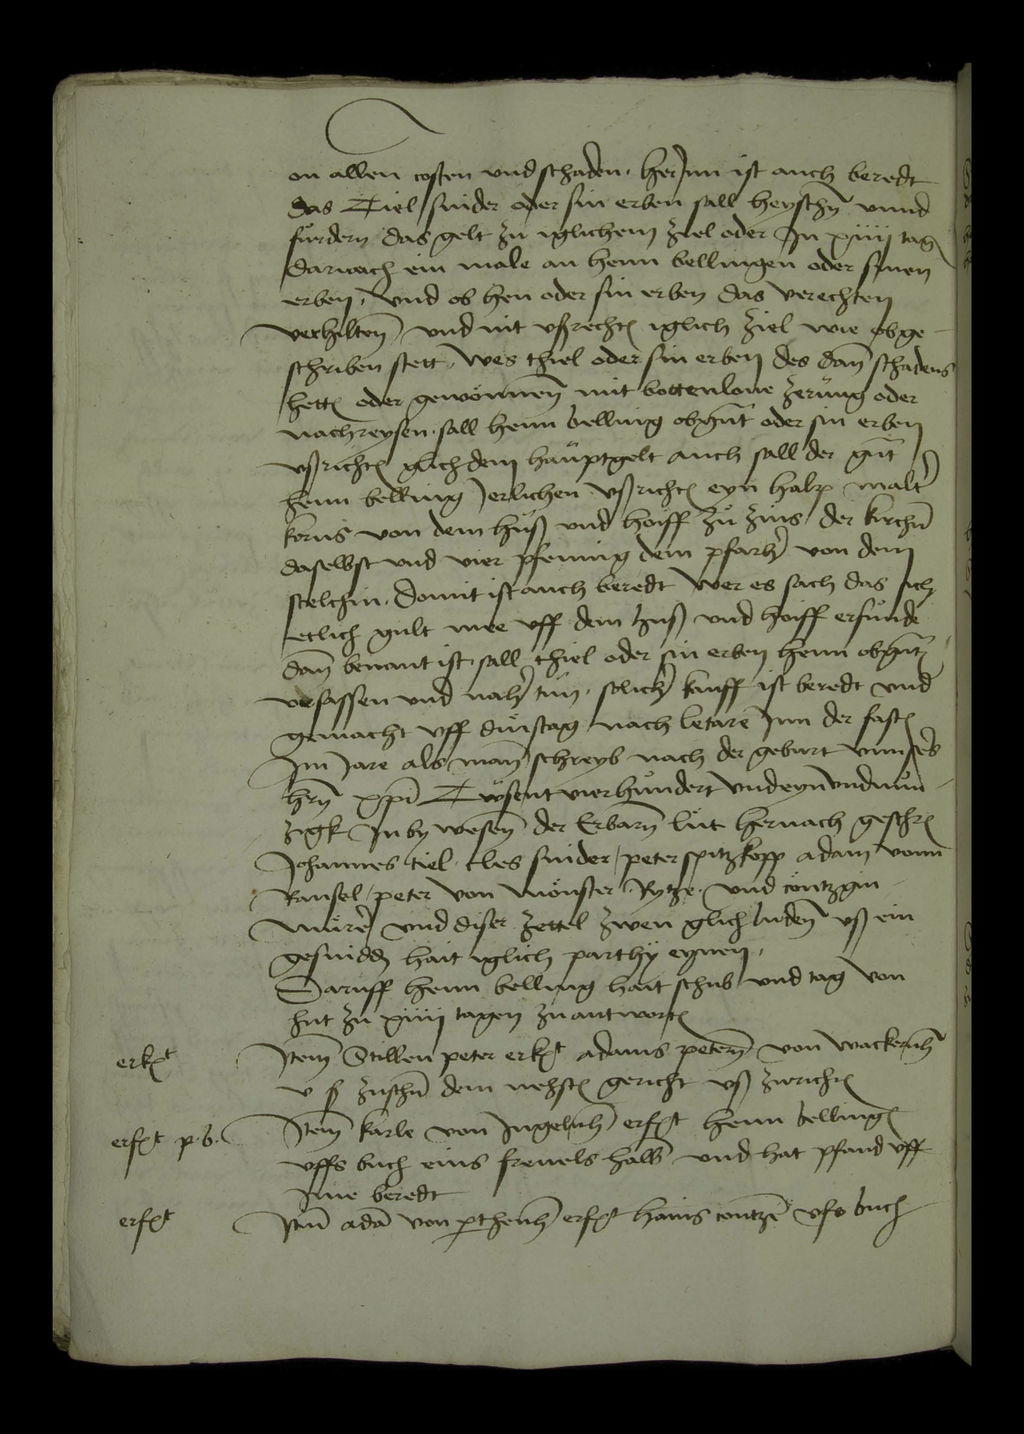 on allen costen und schaden. Herjnn ist auch beredt
das Tiel snider oder sin erben sall heyschn̄ unnd
furdern das gelt zu iglichem ziel oder Jn xiiij tag
darnach ein male an henn bellingen oder sinen
erben, und ob hen oder sin erben das verechten
verhilten und nit ußrechtē iglich ziel wie obge-
schriben stett, wes thiel oder sin erben des dan̄ schadens
hettē oder gewönnen̄ mit bottenlone zerung oder
nachreysen. sall henn belling obgn̄t oder sin erben
ußrichtē glich dem hauptgelt auch sall der gn̄t
henn belling Jerlichen ußrichtē eyn halp malt'
korns von dem huß und hoiff zu zins der kirchn̄
daselbst und vier pfennig dem pfarh' von dem
selchin. Domit ist auch beredt wer es sach das sich
etlich gult mee uff dem huß und hoiff erfunde
dan̄ benant ist, sall thiel oder sin erben henn obgn̄tē
verfassen und nah' tun. solich' kauff ist beredt und
gemacht uff dinstag nach letare Jnn der fastē
Jm Jare als man̄ schreyb nach der geburt unnsers
hrn̄ xpī Tusent vierhundert und eyn̄undnün-
zigk Jn by wesen̄ der Erbarn̄ lut hernach geschrē
Johannes tiel. cles snider / peter spitzkopp adam vonn
Ransel / peter von mönster. Rytze. und cöntzgin
murer und diser zettel zwen glich ludēn uß ein
gesnidd hait iglich parthij eynen,
Daruff henn belling hait schub und tag von
hut zu xiiij tagen zu antwortē
erkēt Jtem̄ Stillen peter erkēt adams petern̄ von wackernh̄
v ß zuschn̄ dem nehstē gericht uß zurichtē
erfēt p.b. Jtem̄ karle von Jngelnh̄ erfēt henn bellingē
uffs buch eins freuels halb̄ und hat pfand uff
Jme beredt
erfēt Jtm̄ adā von parthenh̄ erfēt hanns contzē ufs buch